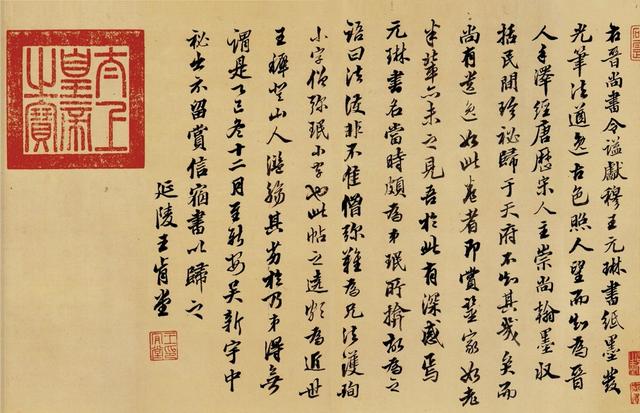 右晉尚書令謚獻穆王元琳書紙墨發
光筆法遒逸古色照人望而知為晉
人手澤經唐歷宋人主崇尚翰墨收
括民間珍祕歸于天府不知其幾矣而
尚有遺逸如此卷者即賞鑒家如老
米輩亦未之見吾於此有深感焉
元琳書名當時頗為弟珉所揜故為之
語曰法護非不佳僧彌難為兄法護珣
小字僧彌珉小字也此帖之為近世
王穉登山人其劣於乃弟得無
謂是冬十二月至新安吳新宇中
祕出示留賞信宿書以歸之
延陵王肯堂
太上皇帝之寶